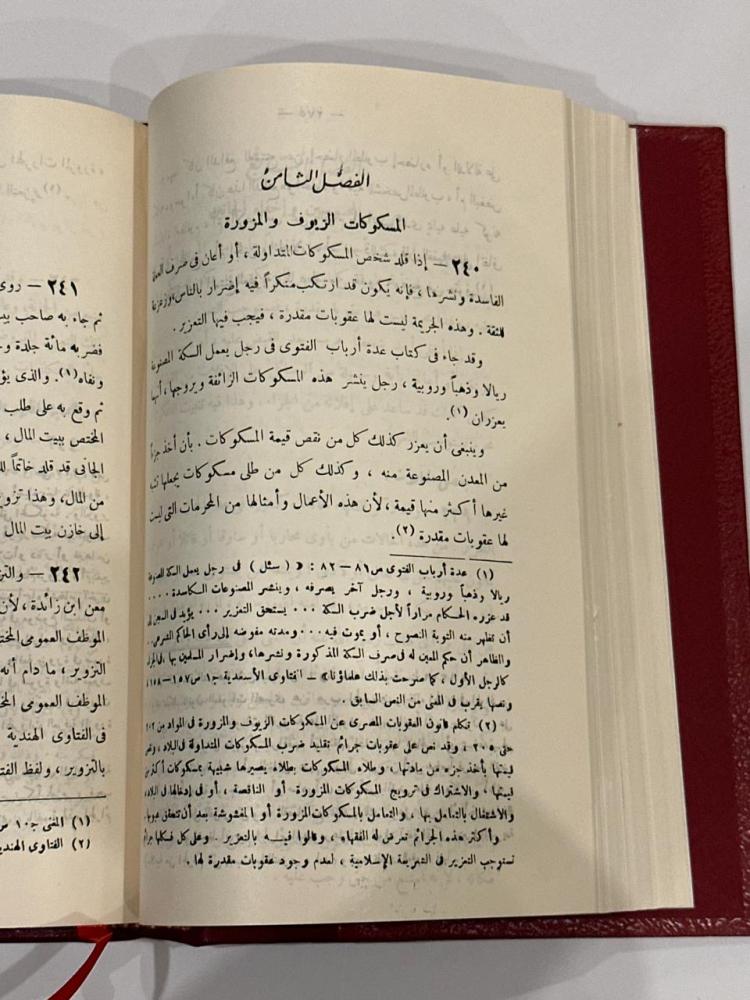 الفصل الثامن
المسكوكات الزيوف والمزورة
٢٤٠ — إذا قلد شخص المسكوكات المتداولة ، أو أعان فى صرف العملة
الفاسدة ونشرها ، فإنه يكون قد ارتكب منكراً فيه إضرار بالناس، وزعزعة
للثقة . وهذه الجريمة ليست لها عقوبات مقدرة ، فيجب فيها التعزير .
وقد جاء فى كتاب عدة أرباب الفتوى فى رجل يعمل السكة المصنوعة
ريالا وذهباً وروبية ، رجل ينشر هذه المسكوكات الزائفة ويروجها ، أنهما
يعزران (١).
وينبغى أن يعزر كذلك كل من نقص قيمة المسكوكات . بأن أخذ جزءاً
من المعدن المصنوعة منه ، وكذلك كل من طلى مسكوكات يجعلها تشبه
غيرها أكثر منها قيمة ، لأن هذه الأعمال وأمثالها من المحرمات التى ليست
لها عقوبات مقدرة (٢).
(١) عدة أرباب الفتوى ص ٨١ — ٨٢ : « ( سئل ) فى رجل يعمل السكة المصنوعة
ريالا وذهباً وروبية ، ورجل آخر يصرفه ، وينشر المصنوعات الكاسدة ....
قد عزره الحكام مراراً لأجل ضرب السكة ... يستحق التعزير ... يؤيد فى السجن إلى
أن تظهر منه التوبة النصوح ، أو يموت فيه ... ومدته مفوضه إلى رأى الحاكم الشرعى..
والظاهر أن حكم المعين له فى صرف السكة المذكورة ونشرها، وإضرار المسلمين بها ، فى الجزاء
كالرجل الأول ، كما صرحت بذلك علماؤنا » — الفتاوى الأسعدية ج ١ ص ١٥٧ — ١٥٨ ،
ونصها يقرب فى المعنى من النص السابق .
(٢) تكلم قانون العقوبات المصرى عن المسكوكات الزيوف والمزورة فى المواد من ٢٠٢
حتى ٢٠٥ ، وقد نص على عقوبات جرائم تقليد ضرب المسكوكات المتداولة فى البلاد ، ونقص
قيمتها بأخذ جزء من مادتها ، وطلاء المسكوكات بطلاء يصيرها شبيهة بمسكوكات أكثر من
قيمتها ، والاشتراك فى ترويج المسكوكات المزورة أو الناقصة ، أو فى إدخالها فى البلاد ،
والاشتغال بالتعامل بها ، والتعامل بالمسكوكات المزورة أو المغشوشة بعد أن تتحقق عيوبها
. وأكثر هذه الجرائم تعرض له الفقهاء ، وقالوا فيه بالتعزير . وعلى كل فكلها جرائم
تستوجب التعزير فى الشريعة الإسلامية ، لعدم وجود عقوبات مقدرة لها .
٢٤١ — روى
ثم جاء به صاحب بيت
فضربه مائة جلدة و
ونفاه (١). والذى يؤ
ثم وقع به على طلب
المختص ببيت المال ،
الجانى قد قلد خاتماً لل
من المال، وهذا تزو
إلى خازن بيت المال
٢٤٢ — والتز
معن ابن زائدة ، لأن
الموظف العمومى المخت
التزوير ، ما دام أنه
الموظف العمومى المخ
فى الفتاوى الهندية
بالتزوير ، ولفظ الفت
(١) المغنى ج ١٠ ص
(٢) الفتاوى الهندية